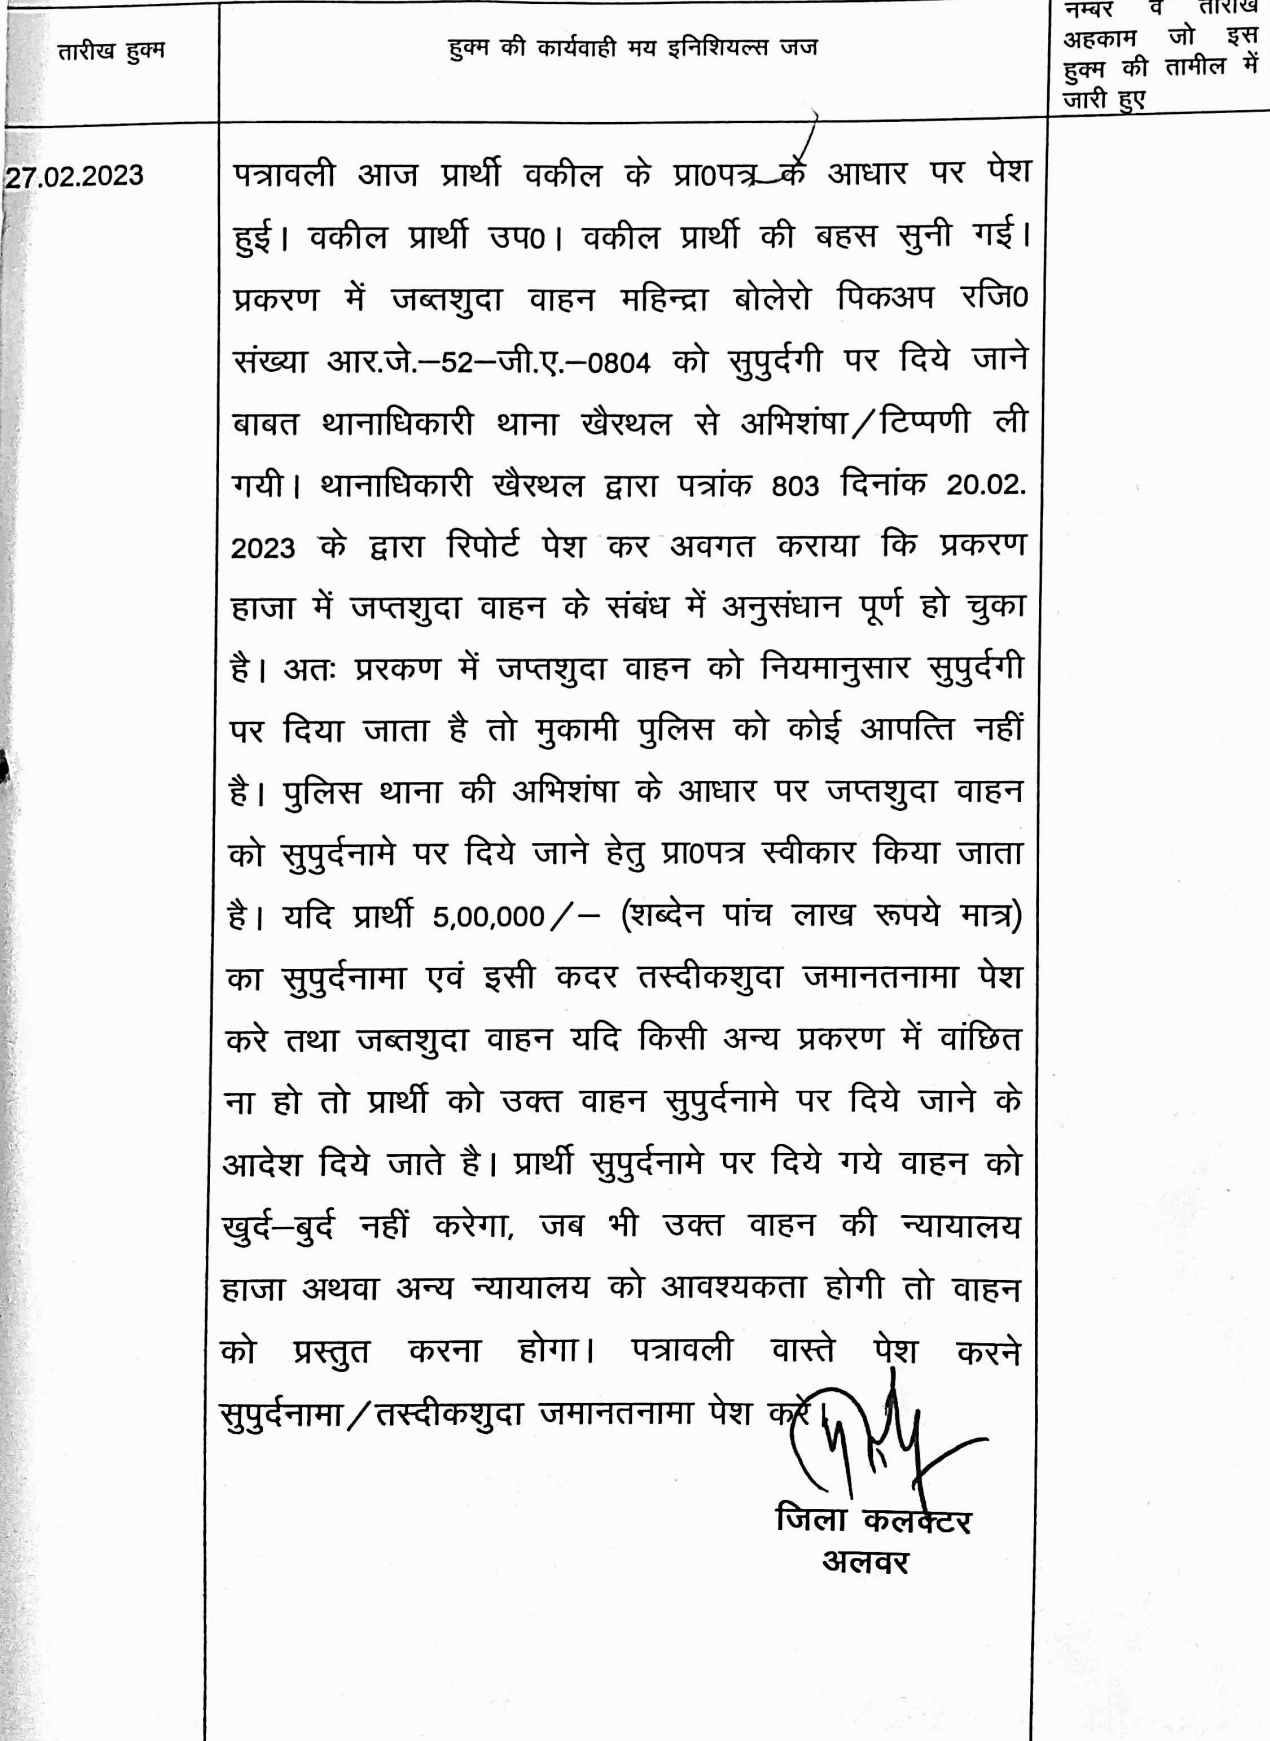 तारीख हुक्म
हुक्म की कार्यवाही मय इनिशियल्स जज
नम्बर व तारीख
अहकाम जो इस
हुक्म की तामील में
जारी हुए
27.02.2023
पत्रावली आज प्रार्थी वकील के प्रा0पत्र के आधार पर पेश
हुई। वकील प्रार्थी उप0। वकील प्रार्थी की बहस सुनी गई।
प्रकरण में जब्तशुदा वाहन महिन्द्रा बोलेरो पिकअप रजि0
संख्या आर.जे.–52–जी.ए.–0804 को सुपुर्दगी पर दिये जाने
बाबत थानाधिकारी थाना खैरथल से अभिशंषा/टिप्पणी ली
गयी। थानाधिकारी खैरथल द्वारा पत्रांक 803 दिनांक 20.02.
2023 के द्वारा रिपोर्ट पेश कर अवगत कराया कि प्रकरण
हाजा में जप्तशुदा वाहन के संबंध में अनुसंधान पूर्ण हो चुका
है। अतः प्ररकण में जप्तशुदा वाहन को नियमानुसार सुपुर्दगी
पर दिया जाता है तो मुकामी पुलिस को कोई आपत्ति नहीं
है। पुलिस थाना की अभिशंषा के आधार पर जप्तशुदा वाहन
को सुपुर्दनामे पर दिये जाने हेतु प्रा0पत्र स्वीकार किया जाता
है। यदि प्रार्थी 5,00,000/– (शब्देन पांच लाख रूपये मात्र)
का सुपुर्दनामा एवं इसी कदर तस्दीकशुदा जमानतनामा पेश
करे तथा जब्तशुदा वाहन यदि किसी अन्य प्रकरण में वांछित
ना हो तो प्रार्थी को उक्त वाहन सुपुर्दनामे पर दिये जाने के
आदेश दिये जाते है। प्रार्थी सुपुर्दनामे पर दिये गये वाहन को
खुर्द–बुर्द नहीं करेगा, जब भी उक्त वाहन की न्यायालय
हाजा अथवा अन्य न्यायालय को आवश्यकता होगी तो वाहन
को प्रस्तुत करना होगा। पत्रावली वास्ते पेश करने
सुपुर्दनामा/तस्दीकशुदा जमानतनामा पेश करे।
जिला कलक्टर
अलवर